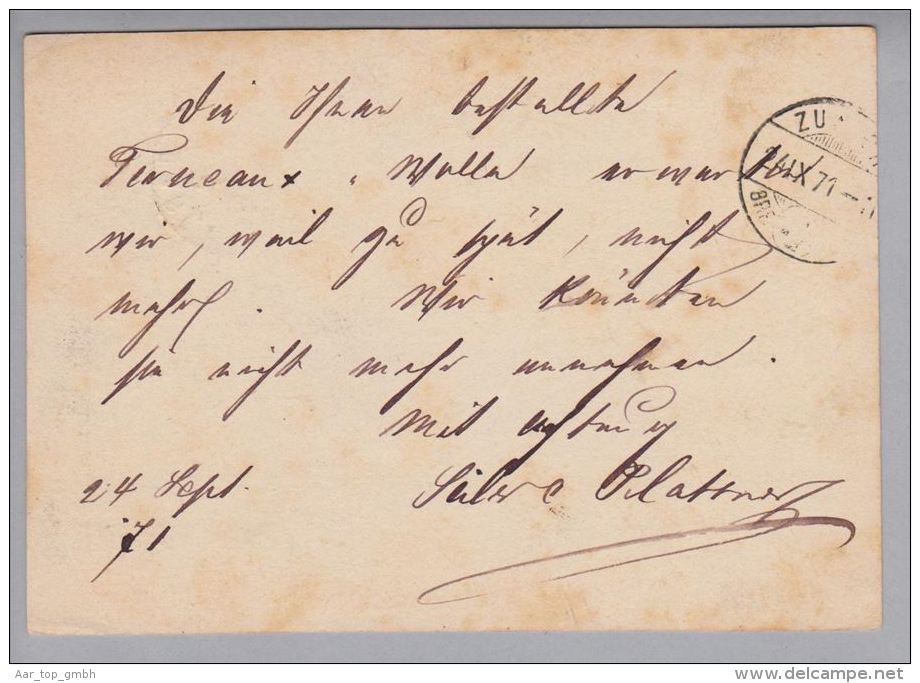 Die Ihnen bestellte
Terneaux „ Wolle erwarten
wir, weil zu spät, nicht
mehr. Wir könnten
sie nicht mehr annehmen.
Mit Achtung
24 Sept.
71
Plattner
ZU
24 IX 71
Aar_top_gmbh
www.delcampe.net